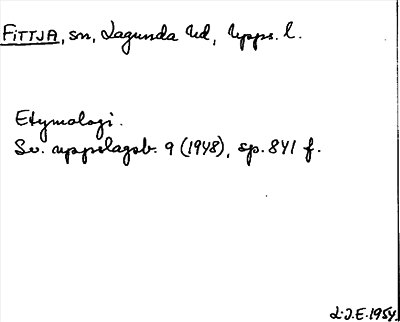 FITTJA, sn, Lagunda hd, Upps. l.
Etymologi.
Sv. uppslagsb. 9 (1948), sp. 841 f.
L.J.E. 1954.